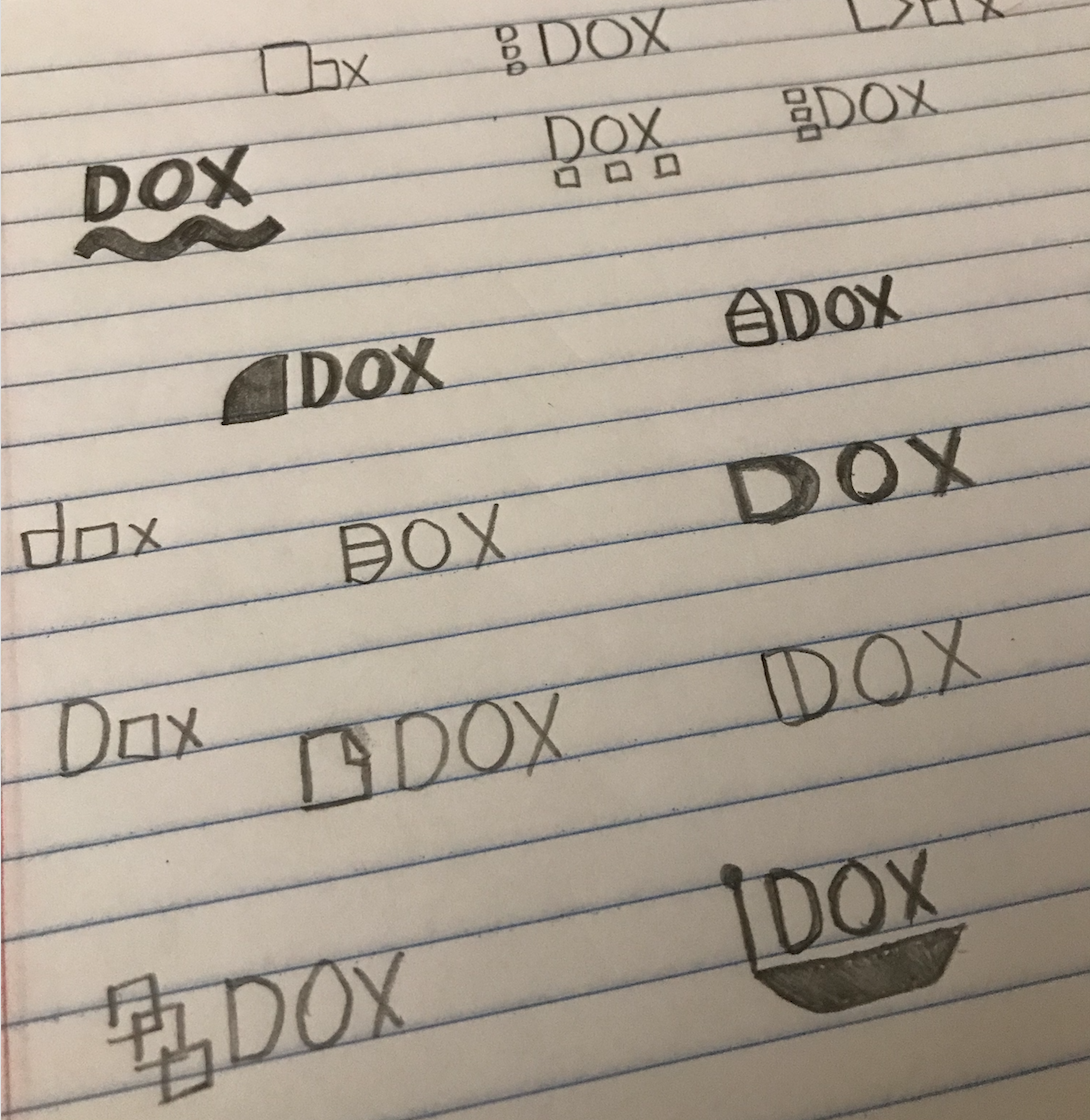 Dox
DOX
DOX
DOX
DOX
DOX
DOX
DOX
dox
DOX
DOX
Dox
DOX
DOX
DOX
DOX